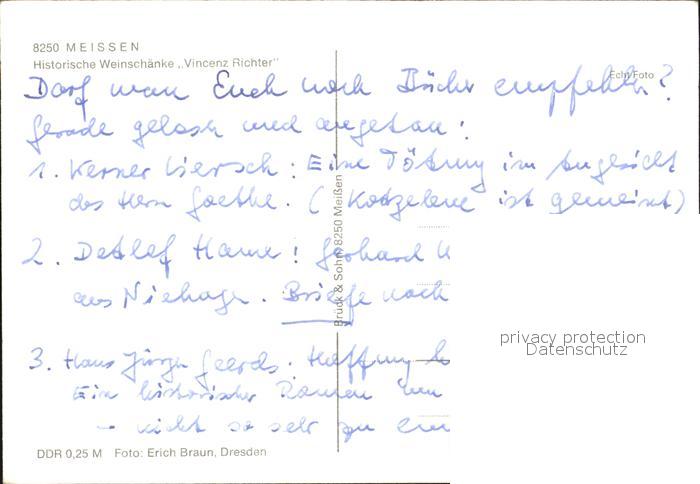 8250 MEISSEN
Historische Weinschänke „Vincenz Richter"
Echt Foto
Darf man Euch noch Bücher empfehlen?
Gerade gelesen und angetan:
1. Werner Liersch: Eine Tötung im Angesicht
des Herrn Goethe. (Kotzebue ist gemeint)
2. Detlef Hamer: Gerhard
aus Niehagen. Briefe nach
3. Hans Jürgen Geerds. Hoffnung
Ein historischer Roman
- nicht so sehr zu
Brück & Sohn, 8250 Meißen
privacy protection
Datenschutz
DDR 0,25 M Foto: Erich Braun, Dresden